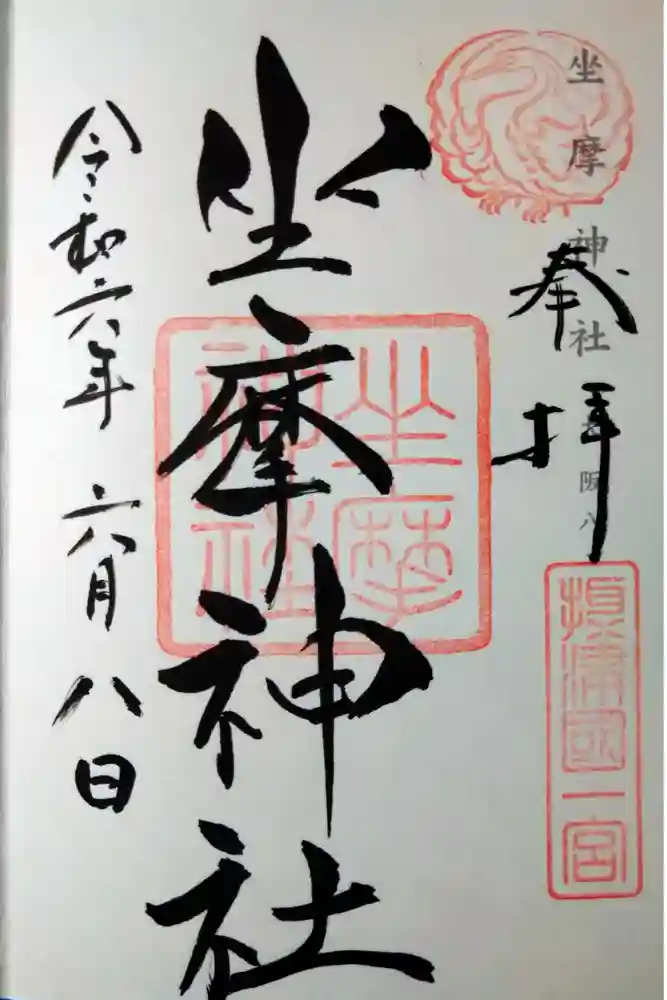 坐摩神社
阪八
奉拝
摂津国一宮
坐摩神社
坐摩神社
令和六年 六月 八日